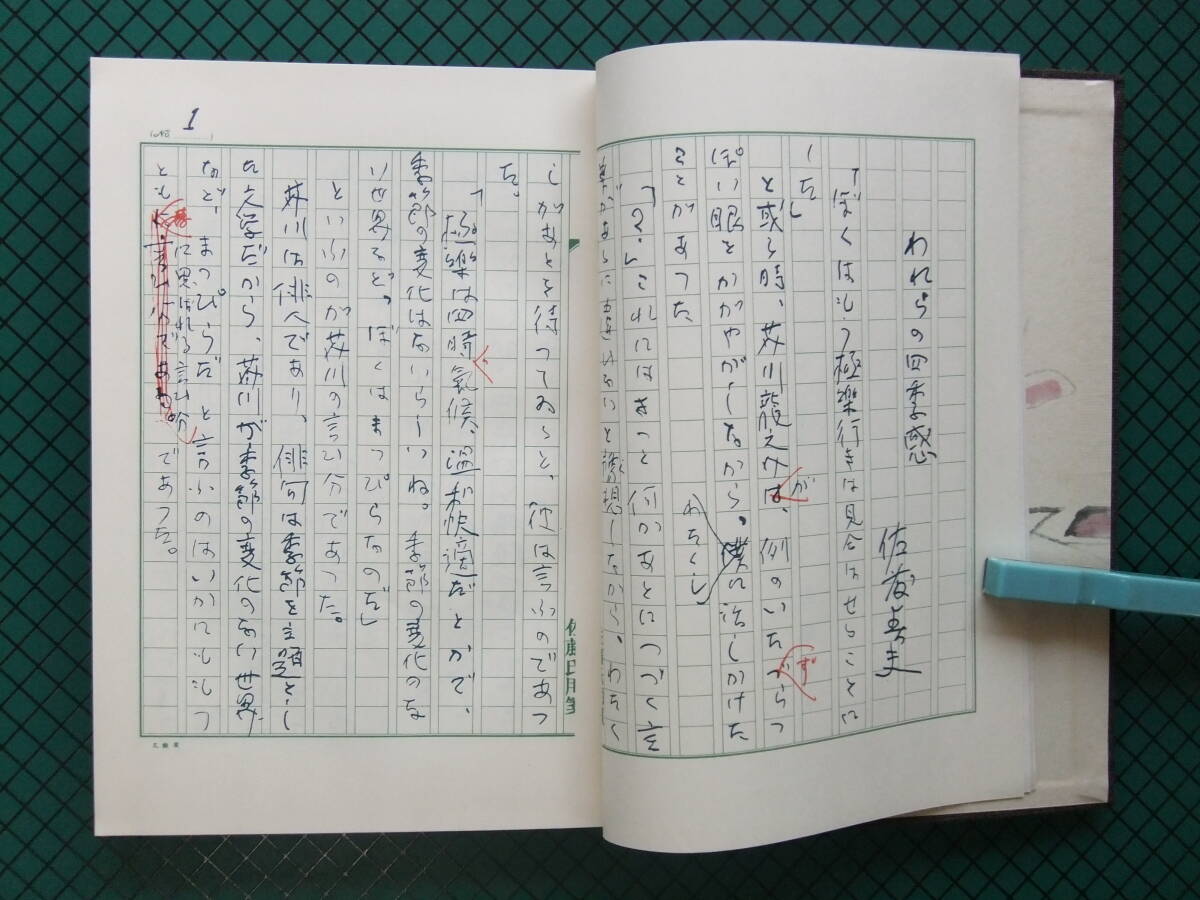 われらの四季感
佐藤春夫
「ぼくはもう極樂行きは見合はせることに
した」
と或る時、芥川龍之介は、が例のいたづらずっ
ぽい眼をかがやかしながら、僕わたくしに話しかけた
ことがあつた
「？」これにはきっと何かあとにつづく言
葉があるに違ひないと豫想しながら、わたく
しがあとを待つてゐると、彼は言ふのであつ
た。
「極樂は四時氣候、温和快適だとかで、
季節の変化はないらしいね。季節の変化のな
い世界など。ぼくはまっぴらなのだ」
といふのが芥川の言ひ分であつた。
芥川は俳人であり、俳句は季節を主題とし
た文学だから、芥川が季節の変化のない世界
など、まつぴらだと言ふのはいかにももつ
ともに思はれる言ひ分であつた。
1